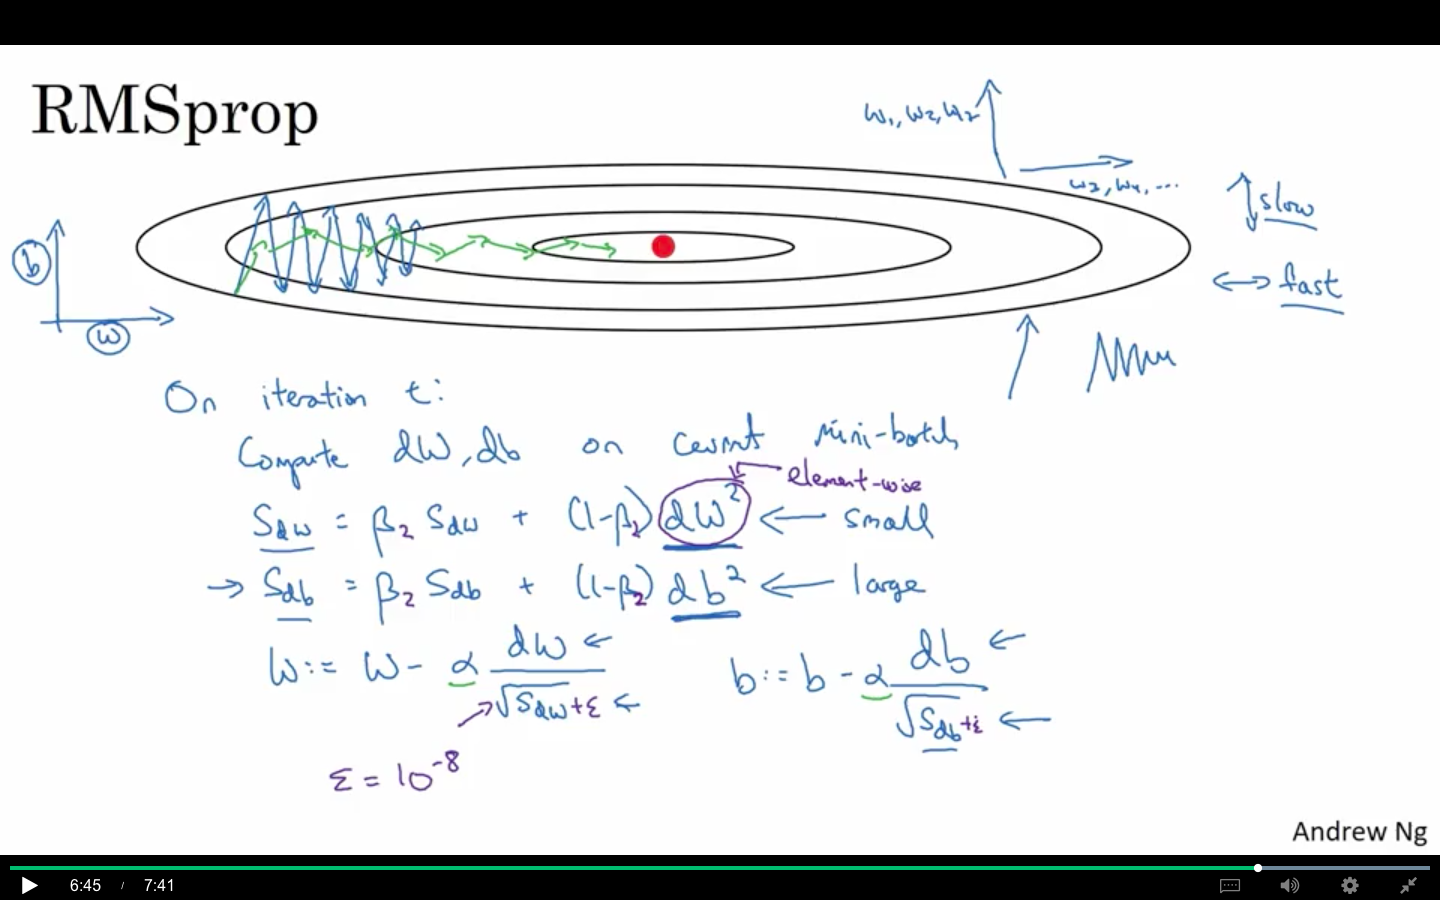 RMSprop
w₁, w₂, w₇
w₃, w₄, ...
↕ slow
↔ fast
b
w
On iteration t:
Compute dW, db on current mini-batch
element-wise
S_dw = β₂ S_dw + (1-β₂) dW² ← small
→ S_db = β₂ S_db + (1-β₂) db² ← large
W := W - α dW / √S_dw + ε ←
b := b - α db / √S_db + ε ←
ε = 10⁻⁸
Andrew Ng
6:45 / 7:41